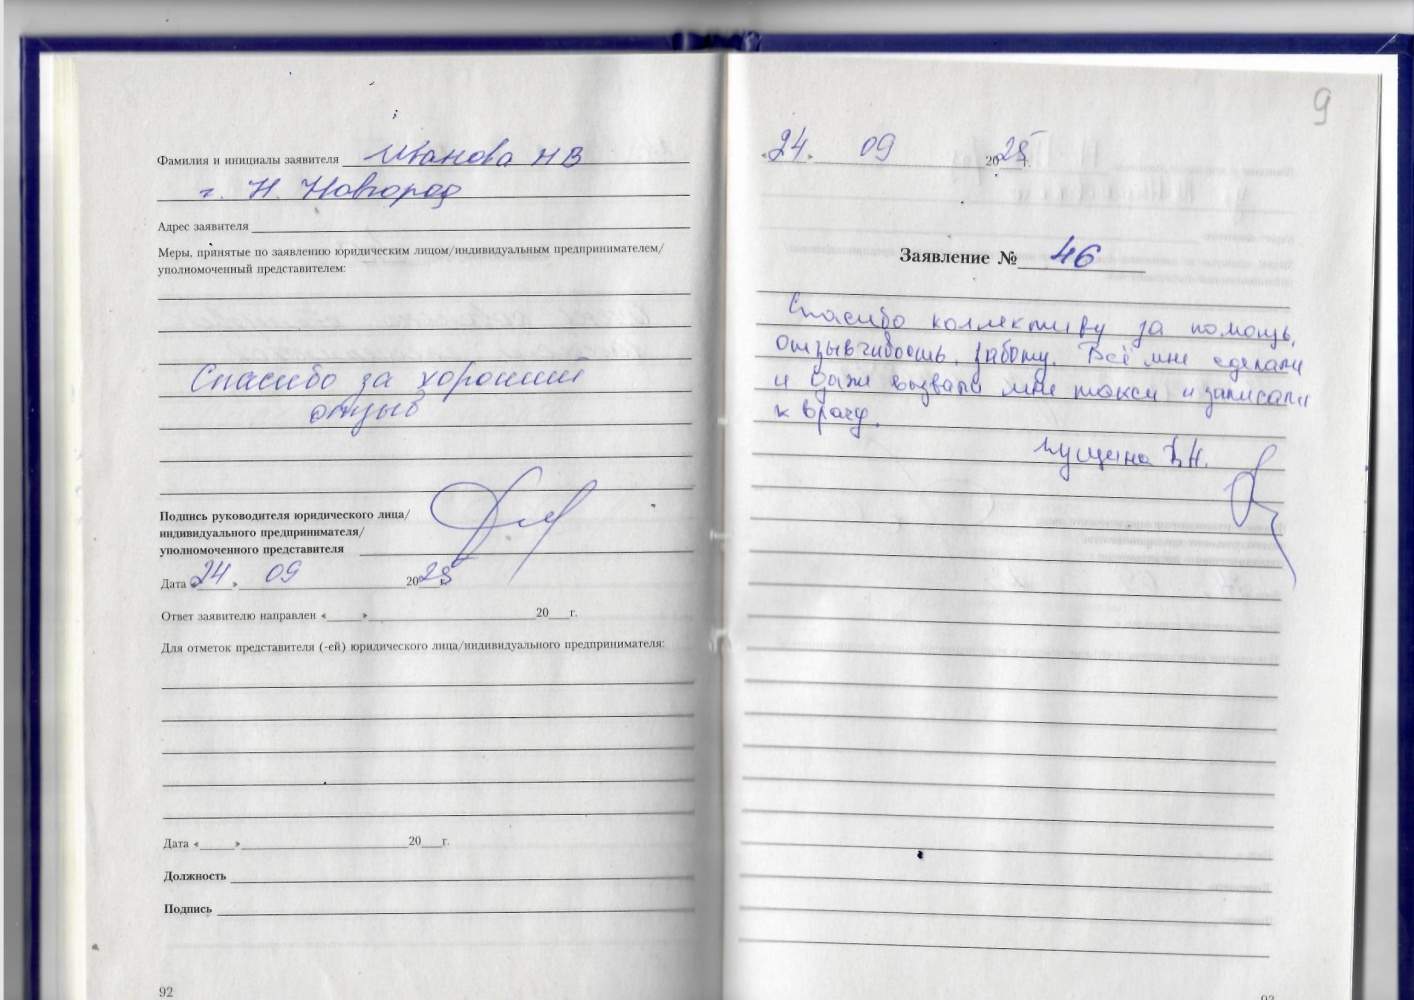 Фамилия и инициалы заявителя Иванова НВ
г. Н. Новгород
Адрес заявителя
Меры, принятые по заявлению юридическим лицом/индивидуальным предпринимателем/
уполномоченный представителем:
Спасибо за хороший
отзыв
Подпись руководителя юридического лица/
индивидуального предпринимателя/
уполномоченного представителя
Дата «24» 09 2025
Ответ заявителю направлен «____» ____ 20__г.
Для отметок представителя (-ей) юридического лица/индивидуального предпринимателя:
Дата «____» ____ 20__г.
Должность
Подпись
92
9
«24» 09 2025г.
Заявление № 46
Спасибо коллективу за помощь,
отзывчивость, работу. Всё мне сделали
и даже вызвали мне такси и записали
к врачу.
В.Н.
93